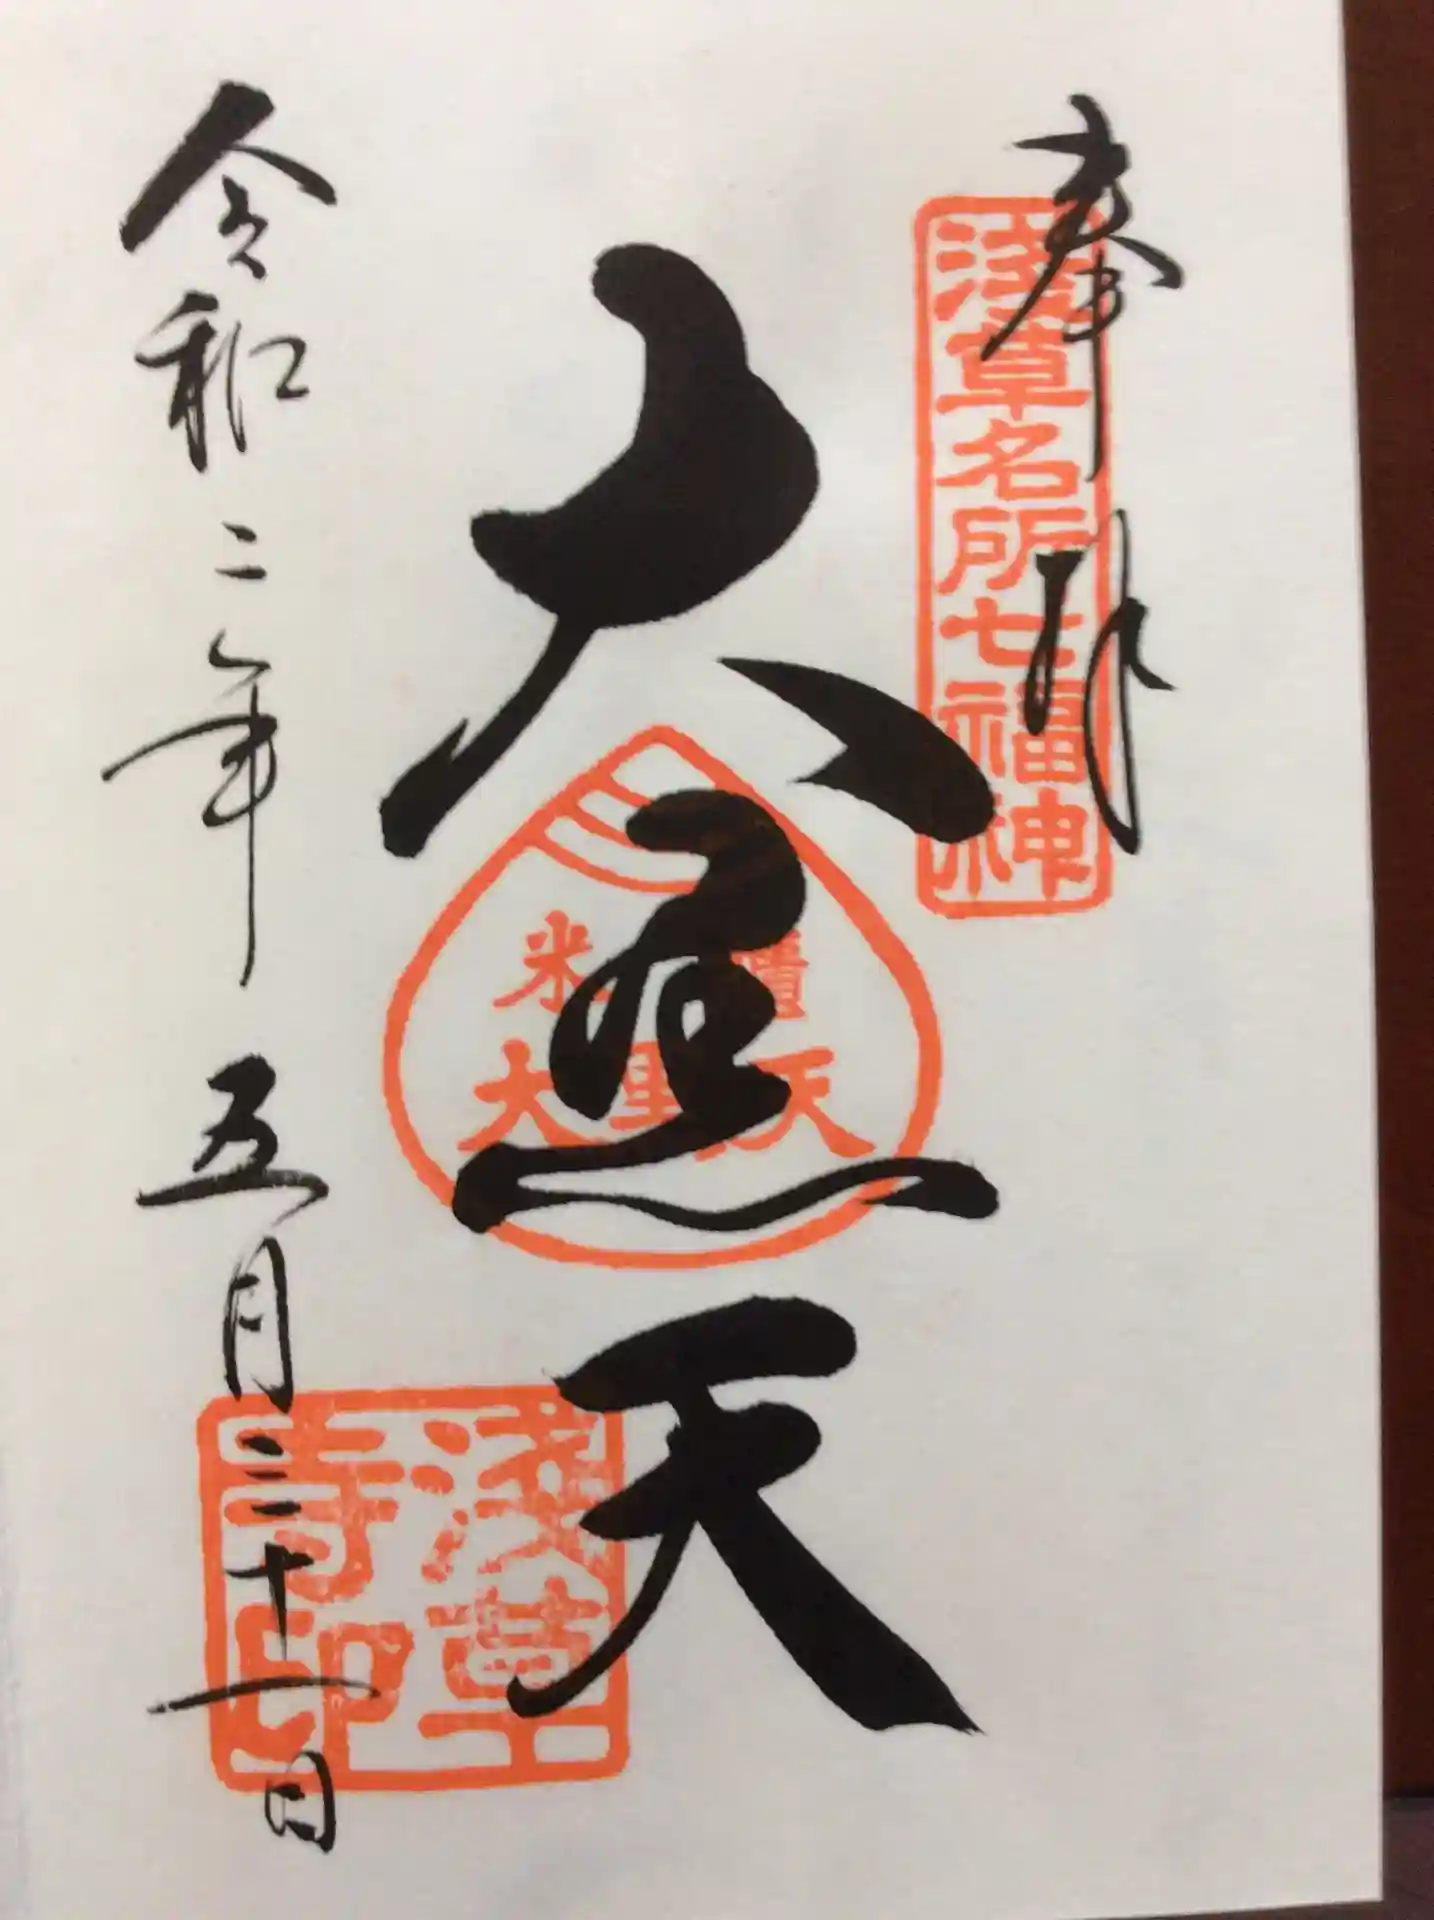 奉拝
浅草名所七福神
大黒天
米
大黒天
浅草
寺印
令和二年 五月三十一日